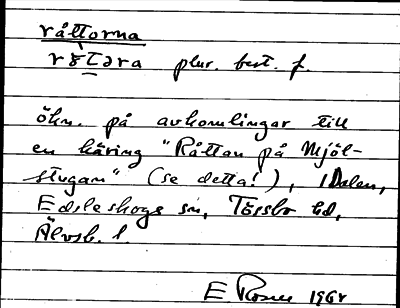 råttorna
plur. best. f.
ökn. på avkomlingar till
en käring "Råttan på Mjöl-
stugan" (se detta!), i Dalen,
Edsleskogs sn, Tössbo hd,
Älvsb. l.
E Rosen